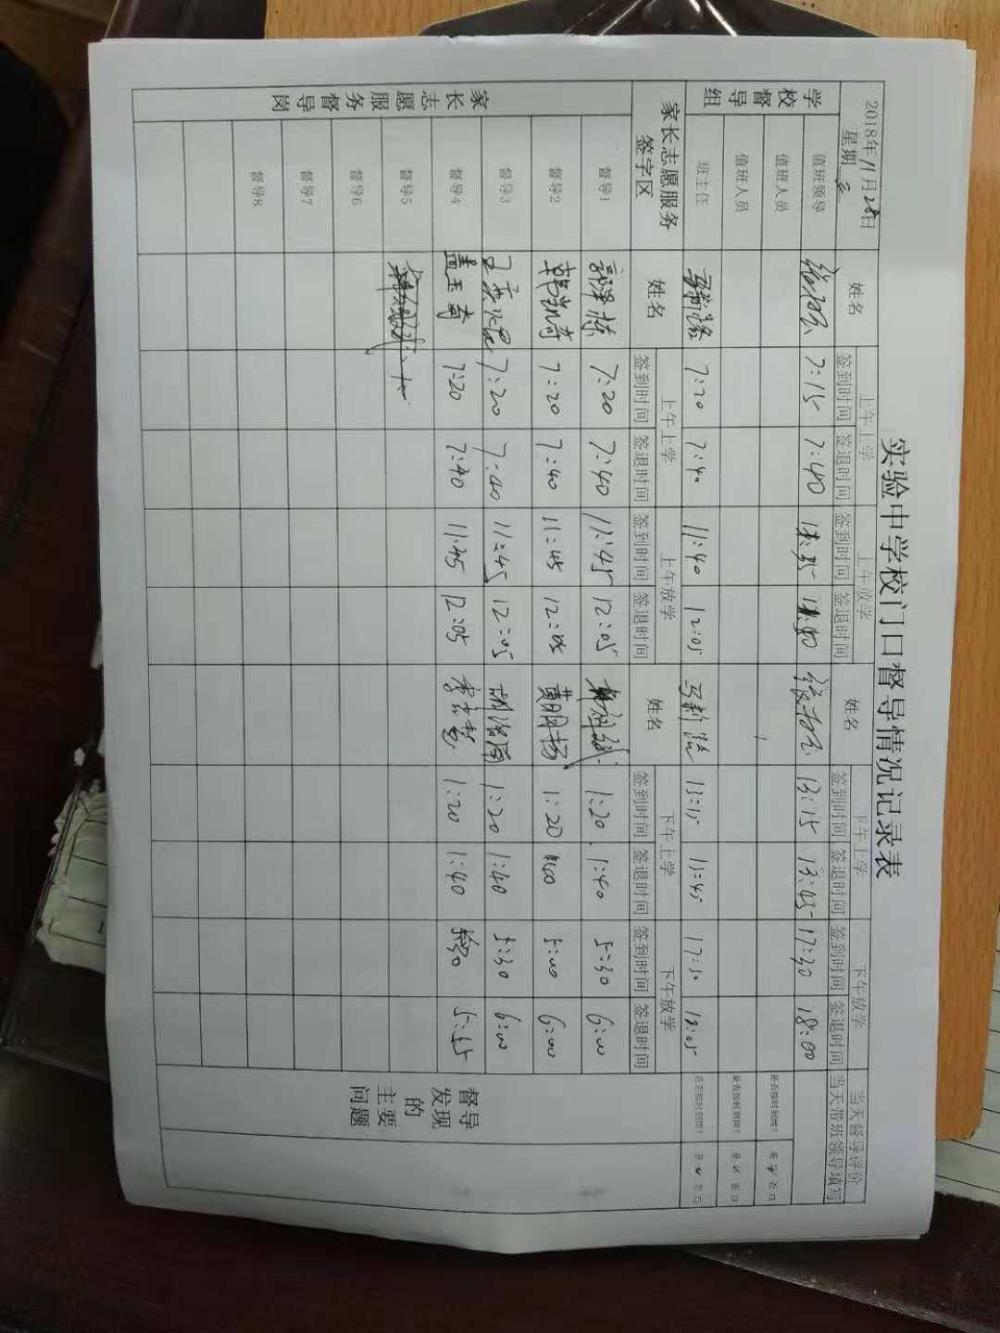 实验中学校门口督导情况记录表
2018年11月28日 星期三 姓名 上午上学 上午放学 姓名 下午上学 下午放学 当天督导评价
签到时间 签退时间 签到时间 签退时间 签到时间 签退时间 签到时间 签退时间 当天带班领导填写
学校督导组 值班领导 7:15 7:40 13:15 13:45 17:30 18:00
值班人员 是否按时到岗?
值班人员 是否按时到岗?
班主任 7:20 7:40 11:40 12:05 13:15 13:45 17:30 18:05 是否按时到岗?
家长志愿服务签字区 姓名 上午上学 上午放学 姓名 下午上学 下午放学
签到时间 签退时间 签到时间 签退时间 签到时间 签退时间 签到时间 签退时间
家长志愿服务督导岗 督导1 7:20 7:40 11:45 12:05 1:20 1:40 5:30 6:00 督导发现的主要问题
督导2 韩凯奇 7:20 7:40 11:45 12:05 1:20 5:00 6:00
督导3 7:20 7:40 11:45 12:05 1:20 1:40 5:30 6:00
督导4 盖玉奇 7:20 7:40 11:45 12:05 1:20 1:40 5:45
督导5
督导6
督导7
督导8